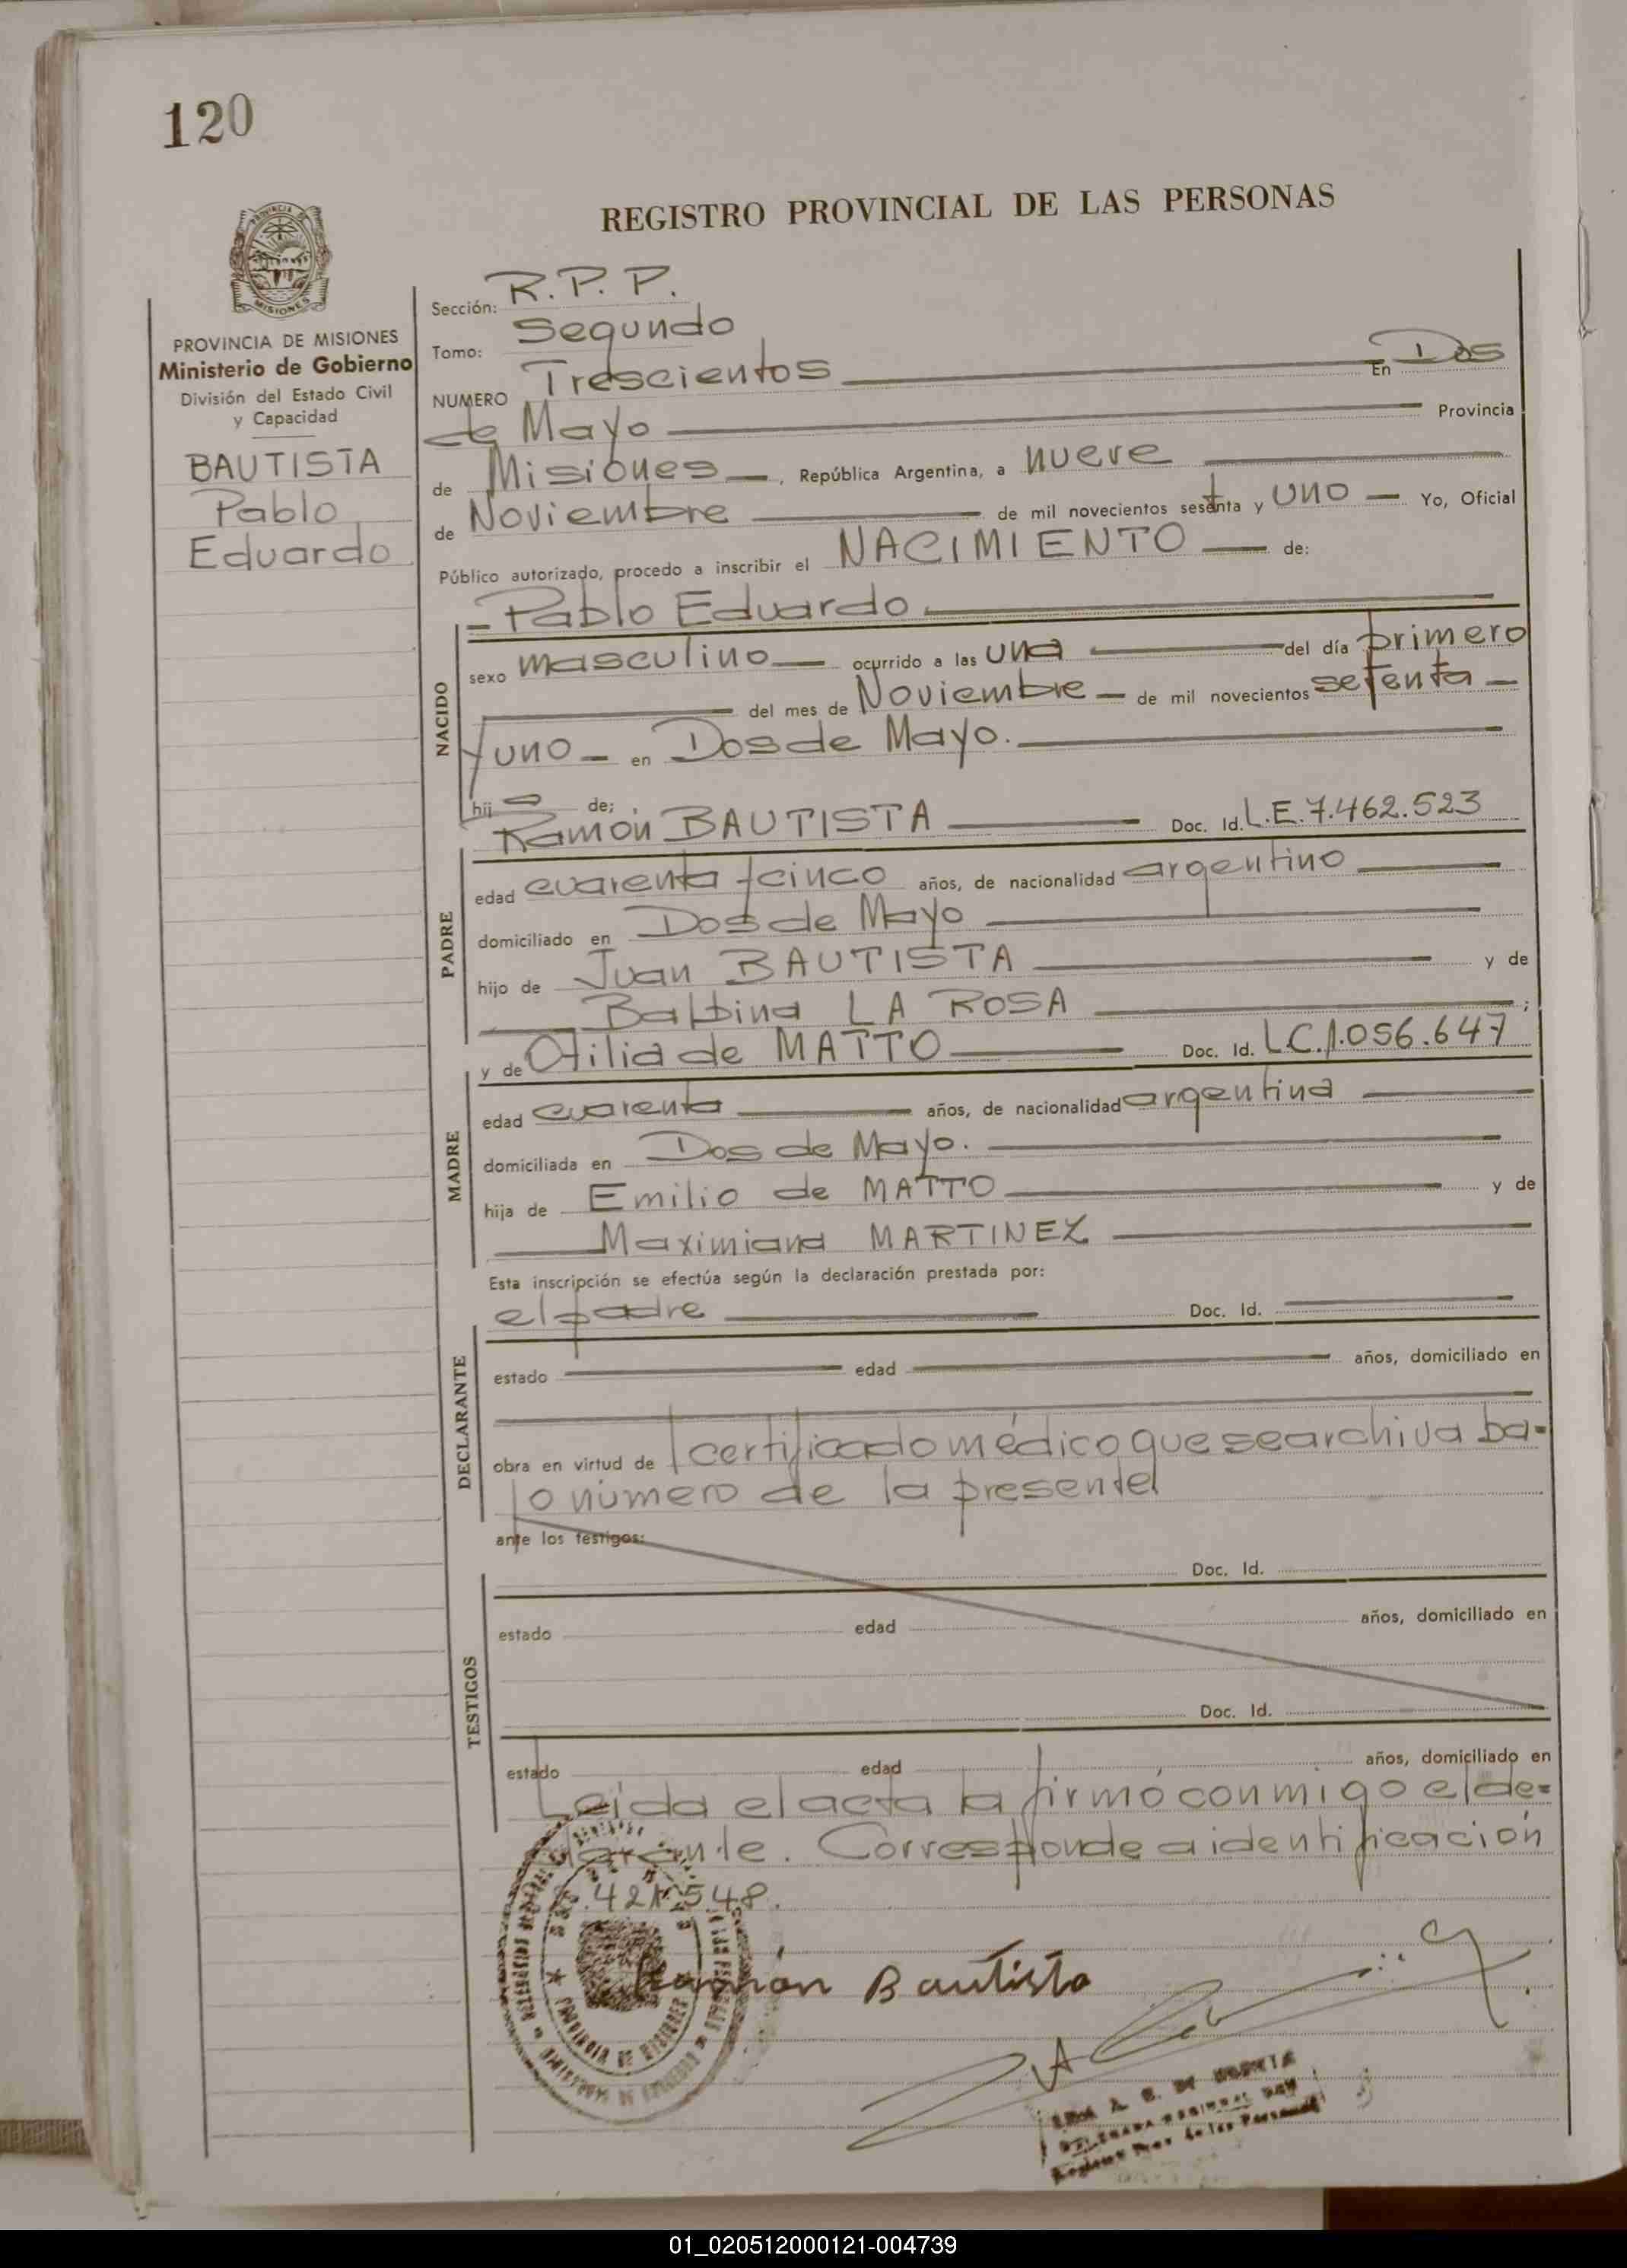 120
REGISTRO PROVINCIAL DE LAS PERSONAS
PROVINCIA DE MISIONES
Ministerio de Gobierno
División del Estado Civil
y Capacidad
BAUTISTA
Pablo
Eduardo
Sección: R.P.P.
Tomo: Segundo
NUMERO Trescientos En Dos
de Mayo Provincia
de Misiones, República Argentina, a nueve
de Noviembre de mil novecientos setenta y uno Yo, Oficial
Público autorizado, procedo a inscribir el NACIMIENTO de:
Pablo Eduardo
NACIDO
sexo masculino ocurrido a las una del día primero
del mes de Noviembre de mil novecientos setenta
y uno en Dos de Mayo.
hijo de;
Ramón BAUTISTA Doc. Id. L.E. 7.462.523
PADRE
edad cuarenta y cinco años, de nacionalidad argentino
domiciliado en Dos de Mayo
hijo de Juan BAUTISTA y de
Balbina LA ROSA ;
y de Otilia de MATTO Doc. Id. L.C. 1.056.647
MADRE
edad cuarenta años, de nacionalidad argentina
domiciliada en Dos de Mayo.
hija de Emilio de MATTO y de
Maximiana MARTINEZ
Esta inscripción se efectúa según la declaración prestada por:
el padre Doc. Id.
DECLARANTE
estado edad años, domiciliado en
obra en virtud de certificado médico que se archiva ba-
jo número de la presente
ante los testigos:
Doc. Id.
TESTIGOS
estado edad años, domiciliado en
Doc. Id.
estado edad años, domiciliado en
Leída el acta la firmó conmigo el de=
clarante. Corresponde a identificación
Ramón Bautista
PROVINCIA DE MISIONES
01_020512000121-004739